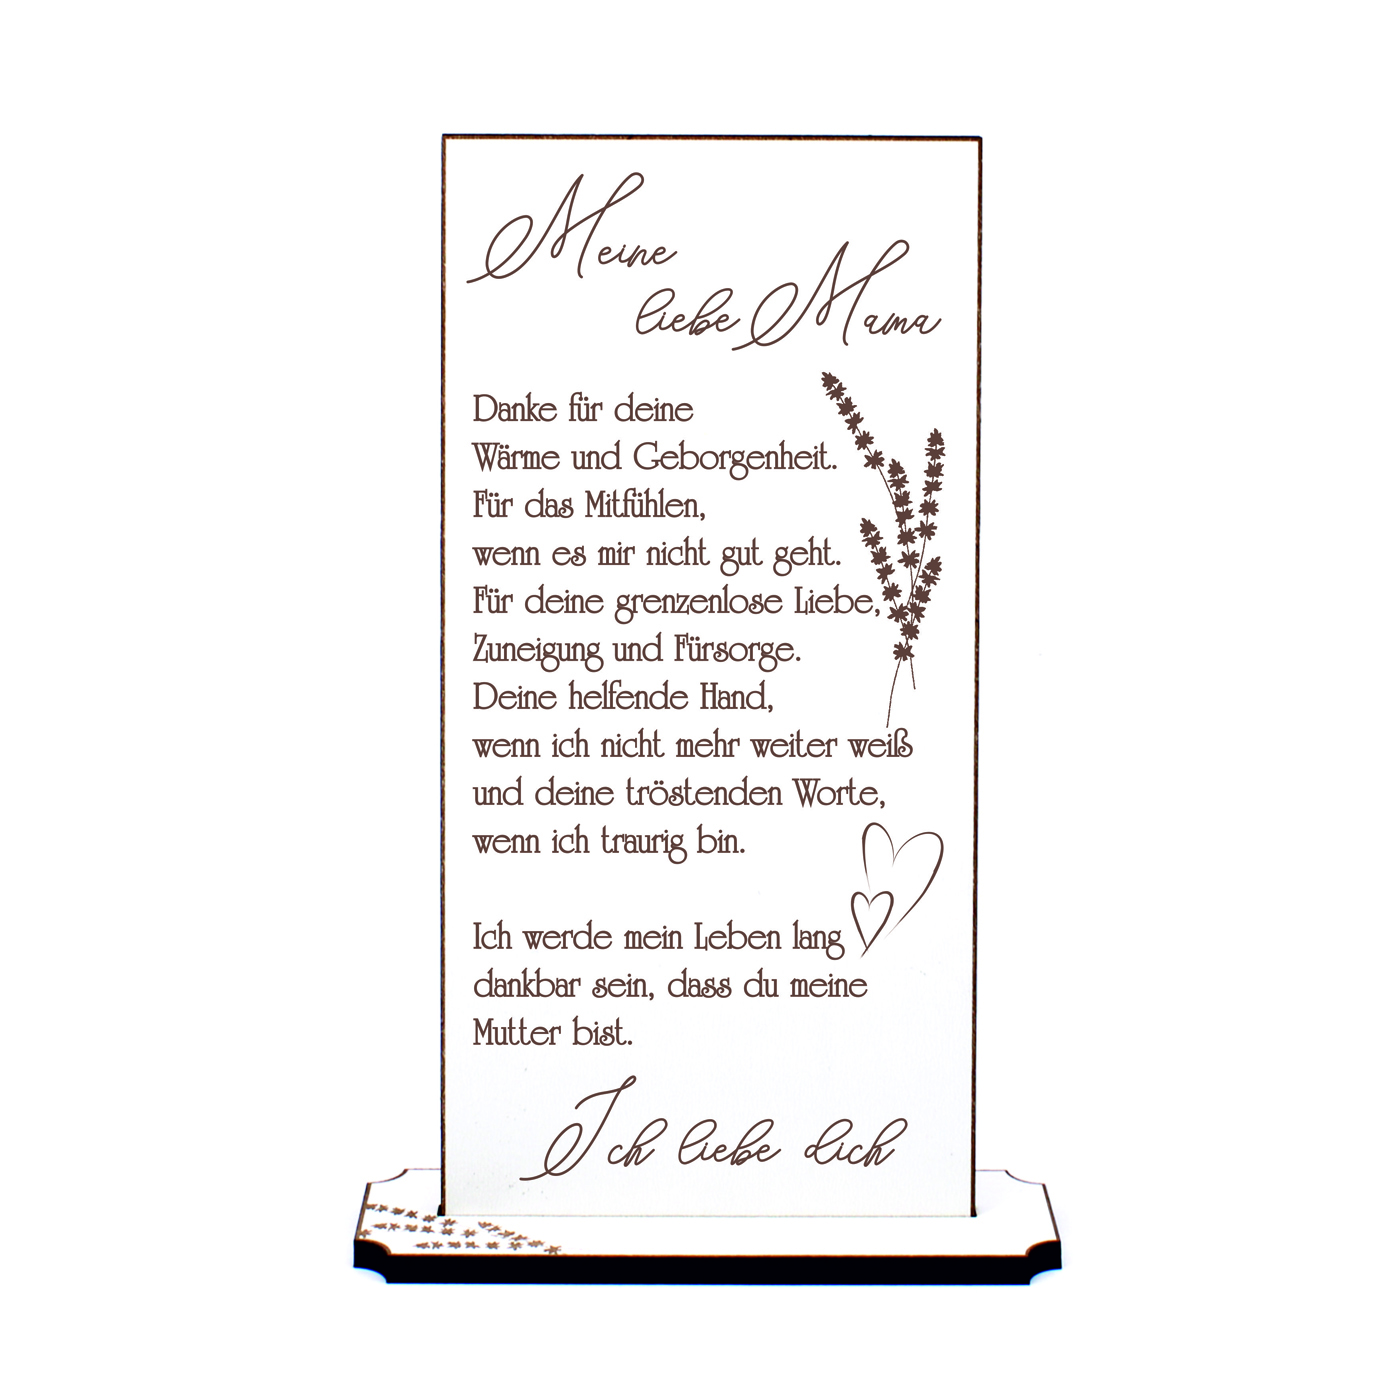 Meine
liebe Mama
Danke für deine
Wärme und Geborgenheit.
Für das Mitfühlen,
wenn es mir nicht gut geht.
Für deine grenzenlose Liebe,
Zuneigung und Fürsorge.
Deine helfende Hand,
wenn ich nicht mehr weiter weiß
und deine tröstenden Worte,
wenn ich traurig bin.
Ich werde mein Leben lang
dankbar sein, dass du meine
Mutter bist.
Ich liebe dich